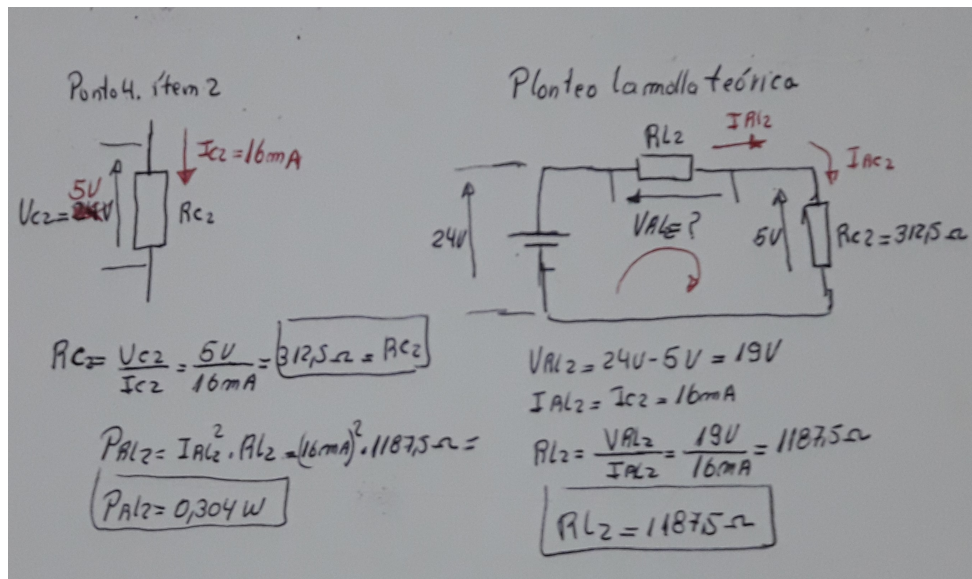 Ponto 4. ítem 2
Ic2 = 16mA
5V
Uc2= V
Rc2
Rc2= Uc2/Ic2 = 5V/16mA = 312,5Ω = Rc2
PRL2= IRL2². RL2 =(16mA)². 1187,5Ω =
PRL2= 0,304 W
Planteo la malla teórica
IRL2
RL2
IRc2
24V
VRL=?
5V
Rc2=312,5Ω
VRL2 = 24V - 5V = 19V
IRL2= Ic2 = 16mA
RL2= VRL2/IRL2 = 19V/16mA = 1187,5Ω
RL2 = 1187,5Ω